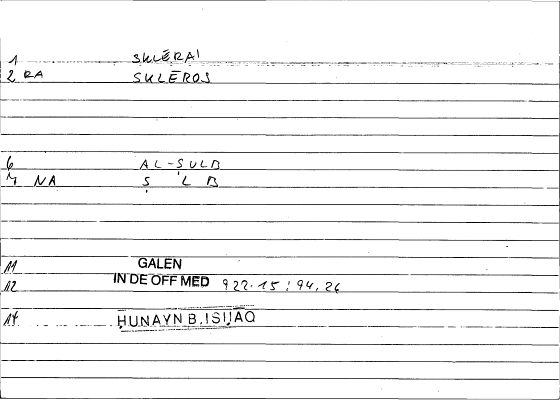 1 SKLĒRAI
2 RA SKLĒROS
6 AL-ṢULB
7 NA Ṣ L B
11 GALEN
12 IN DE OFF MED 922.15 ; 94.26
14 ḤUNAYN B. ISḤĀQ